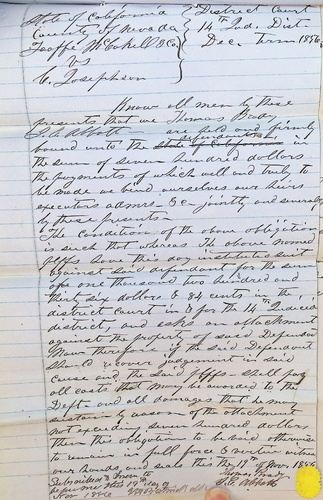 State of California } District Court
County of Nevada } 14th Jud. Dist
Taaffe McCahill & Co. } Dec. Term 1856
vs
C. Josephson
Know all men by these
presents that we Thomas
S. E. Abbott are held and firmly
bound unto the State of California defendant in
the sum of seven hundred dollars
the payments of which well and truly to
be made we bind ourselves our heirs
executors admrs &c jointly and severally
by these presents
The condition of the above obligation
is such that whereas the above named
plffs have this day instituted suit
against said defendant for the sum
of one thousand two hundred and
thirt six dollars & 84 cents in the
district Court in & for the 14th Judicial
district, and asks an attachment
against the property of said Defendant
Now therefore if the said Defendant
should recover judgement in said
cause and the said plffs shall pay
all costs that may be awarded to the
Deft and all damages that he may
sustain by reason of the attachment
not exceeding seven hundred dollars
then this obligation to be void otherwise
to remain in full force & virtue witness
our hands and seals this the 19th of Nov. 1856
Subscribed & sworn to
before me this 19th day of
Nov 1856
S. E. Abbott